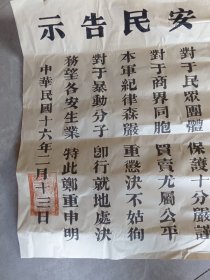 安民告示
對于民眾團體 保護十分嚴謹
對于商界同胞 買賣尤屬公平
本軍紀律森嚴 重懲決不姑狥
對于暴動分子 卽行就地處決
務望各安生業 特此鄭重申明
中華民國十六年二月十三日